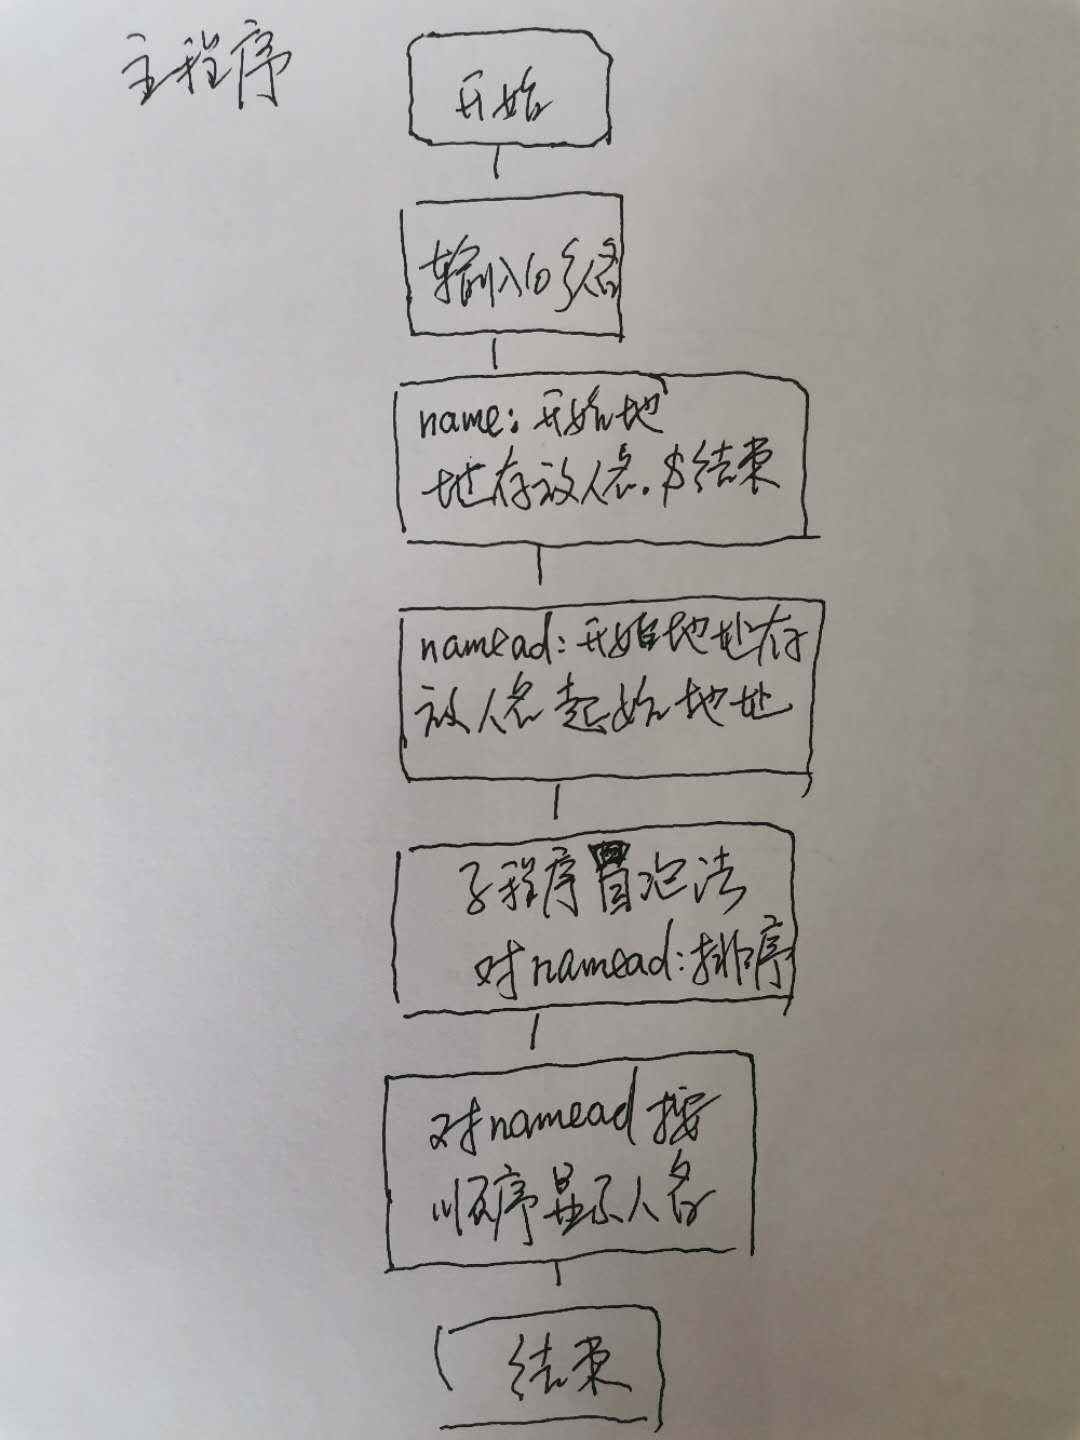 主程序
开始
输入10个人名
name:开始地
地存放人名.$结束
namead:开始地址存
放人名起始地址
子程序冒泡法
对namead:排序
对namead按
顺序显示人名
结束